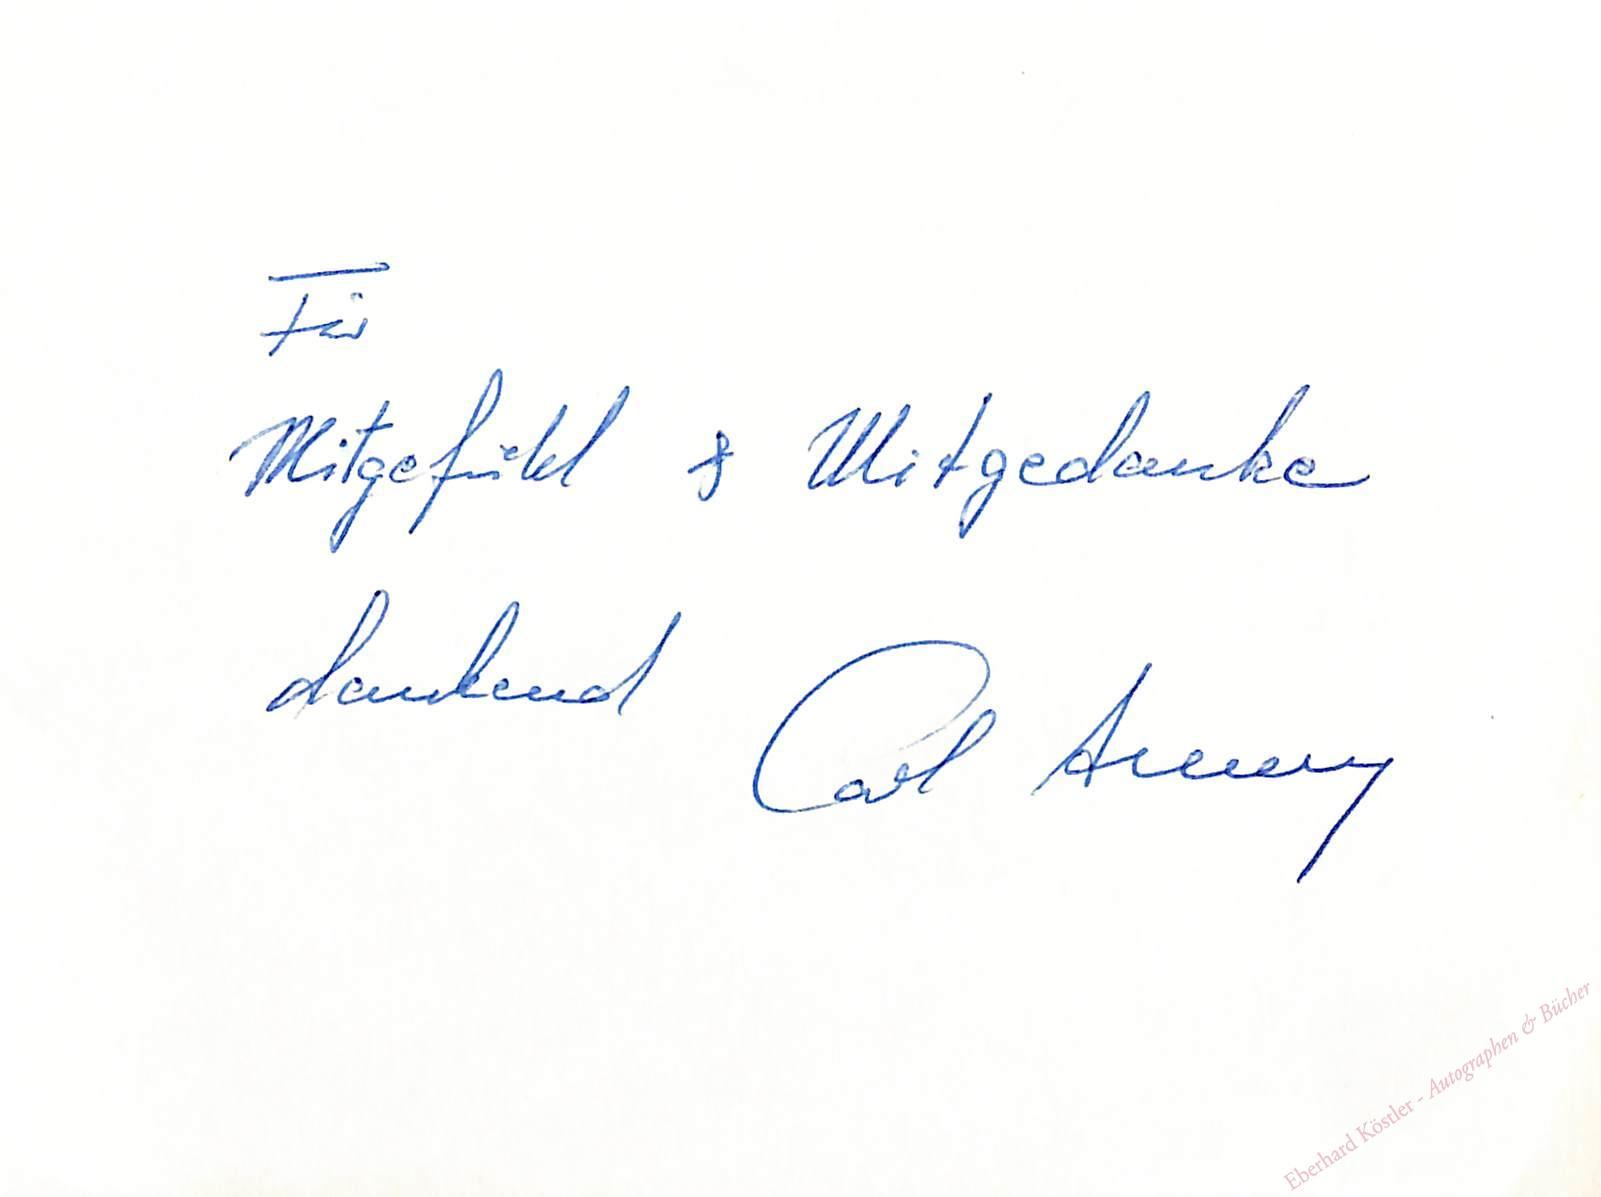 Für
Mitgefühl & Mitgedanke
dankend
Carl Amery
Eberhard Köstler - Autographen & Bücher